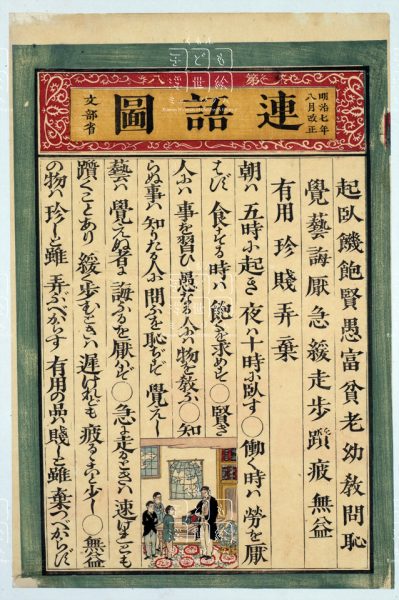 連語圖
明治七年
八月改正
文部省
起臥饑飽賢愚富貧老幼教問恥
覺藝誨厭急緩走歩躓疲無益
有用珍賤弄棄
朝ハ五時に起き夜ハ十時に臥す〇働く時ハ勞を厭
はず食する時ハ飽くを求めず〇賢き
人にハ事を習ひ愚なる人にハ物を教ふ〇知
らぬ事ハ知りたる人に問ふを恥ぢず覺えし
藝ハ覺えぬ者に誨ふるを厭はず〇急に走るときハ速けれども
躓くことあり緩く歩むときハ遲けれども疲るること少し〇無益
の物ハ珍しと雖弄ぶべからず有用の品ハ賤しと雖棄つべからず